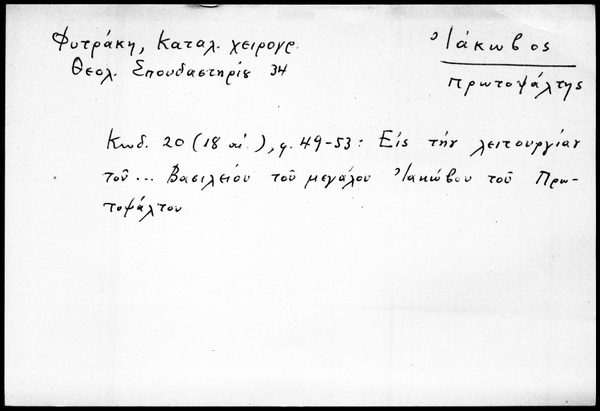 Φυτράκη, Καταλ. χειρογρ.
Θεολ. Σπουδαστηρίου 34
Ἰάκωβος
Πρωτοψάλτης
Κωδ. 20 (18 αἰ.), φ. 49-53: Εἰς τὴν λειτουργίαν
τοῦ... Βασιλείου τοῦ μεγάλου Ἰακώβου τοῦ Πρω-
τοψάλτου